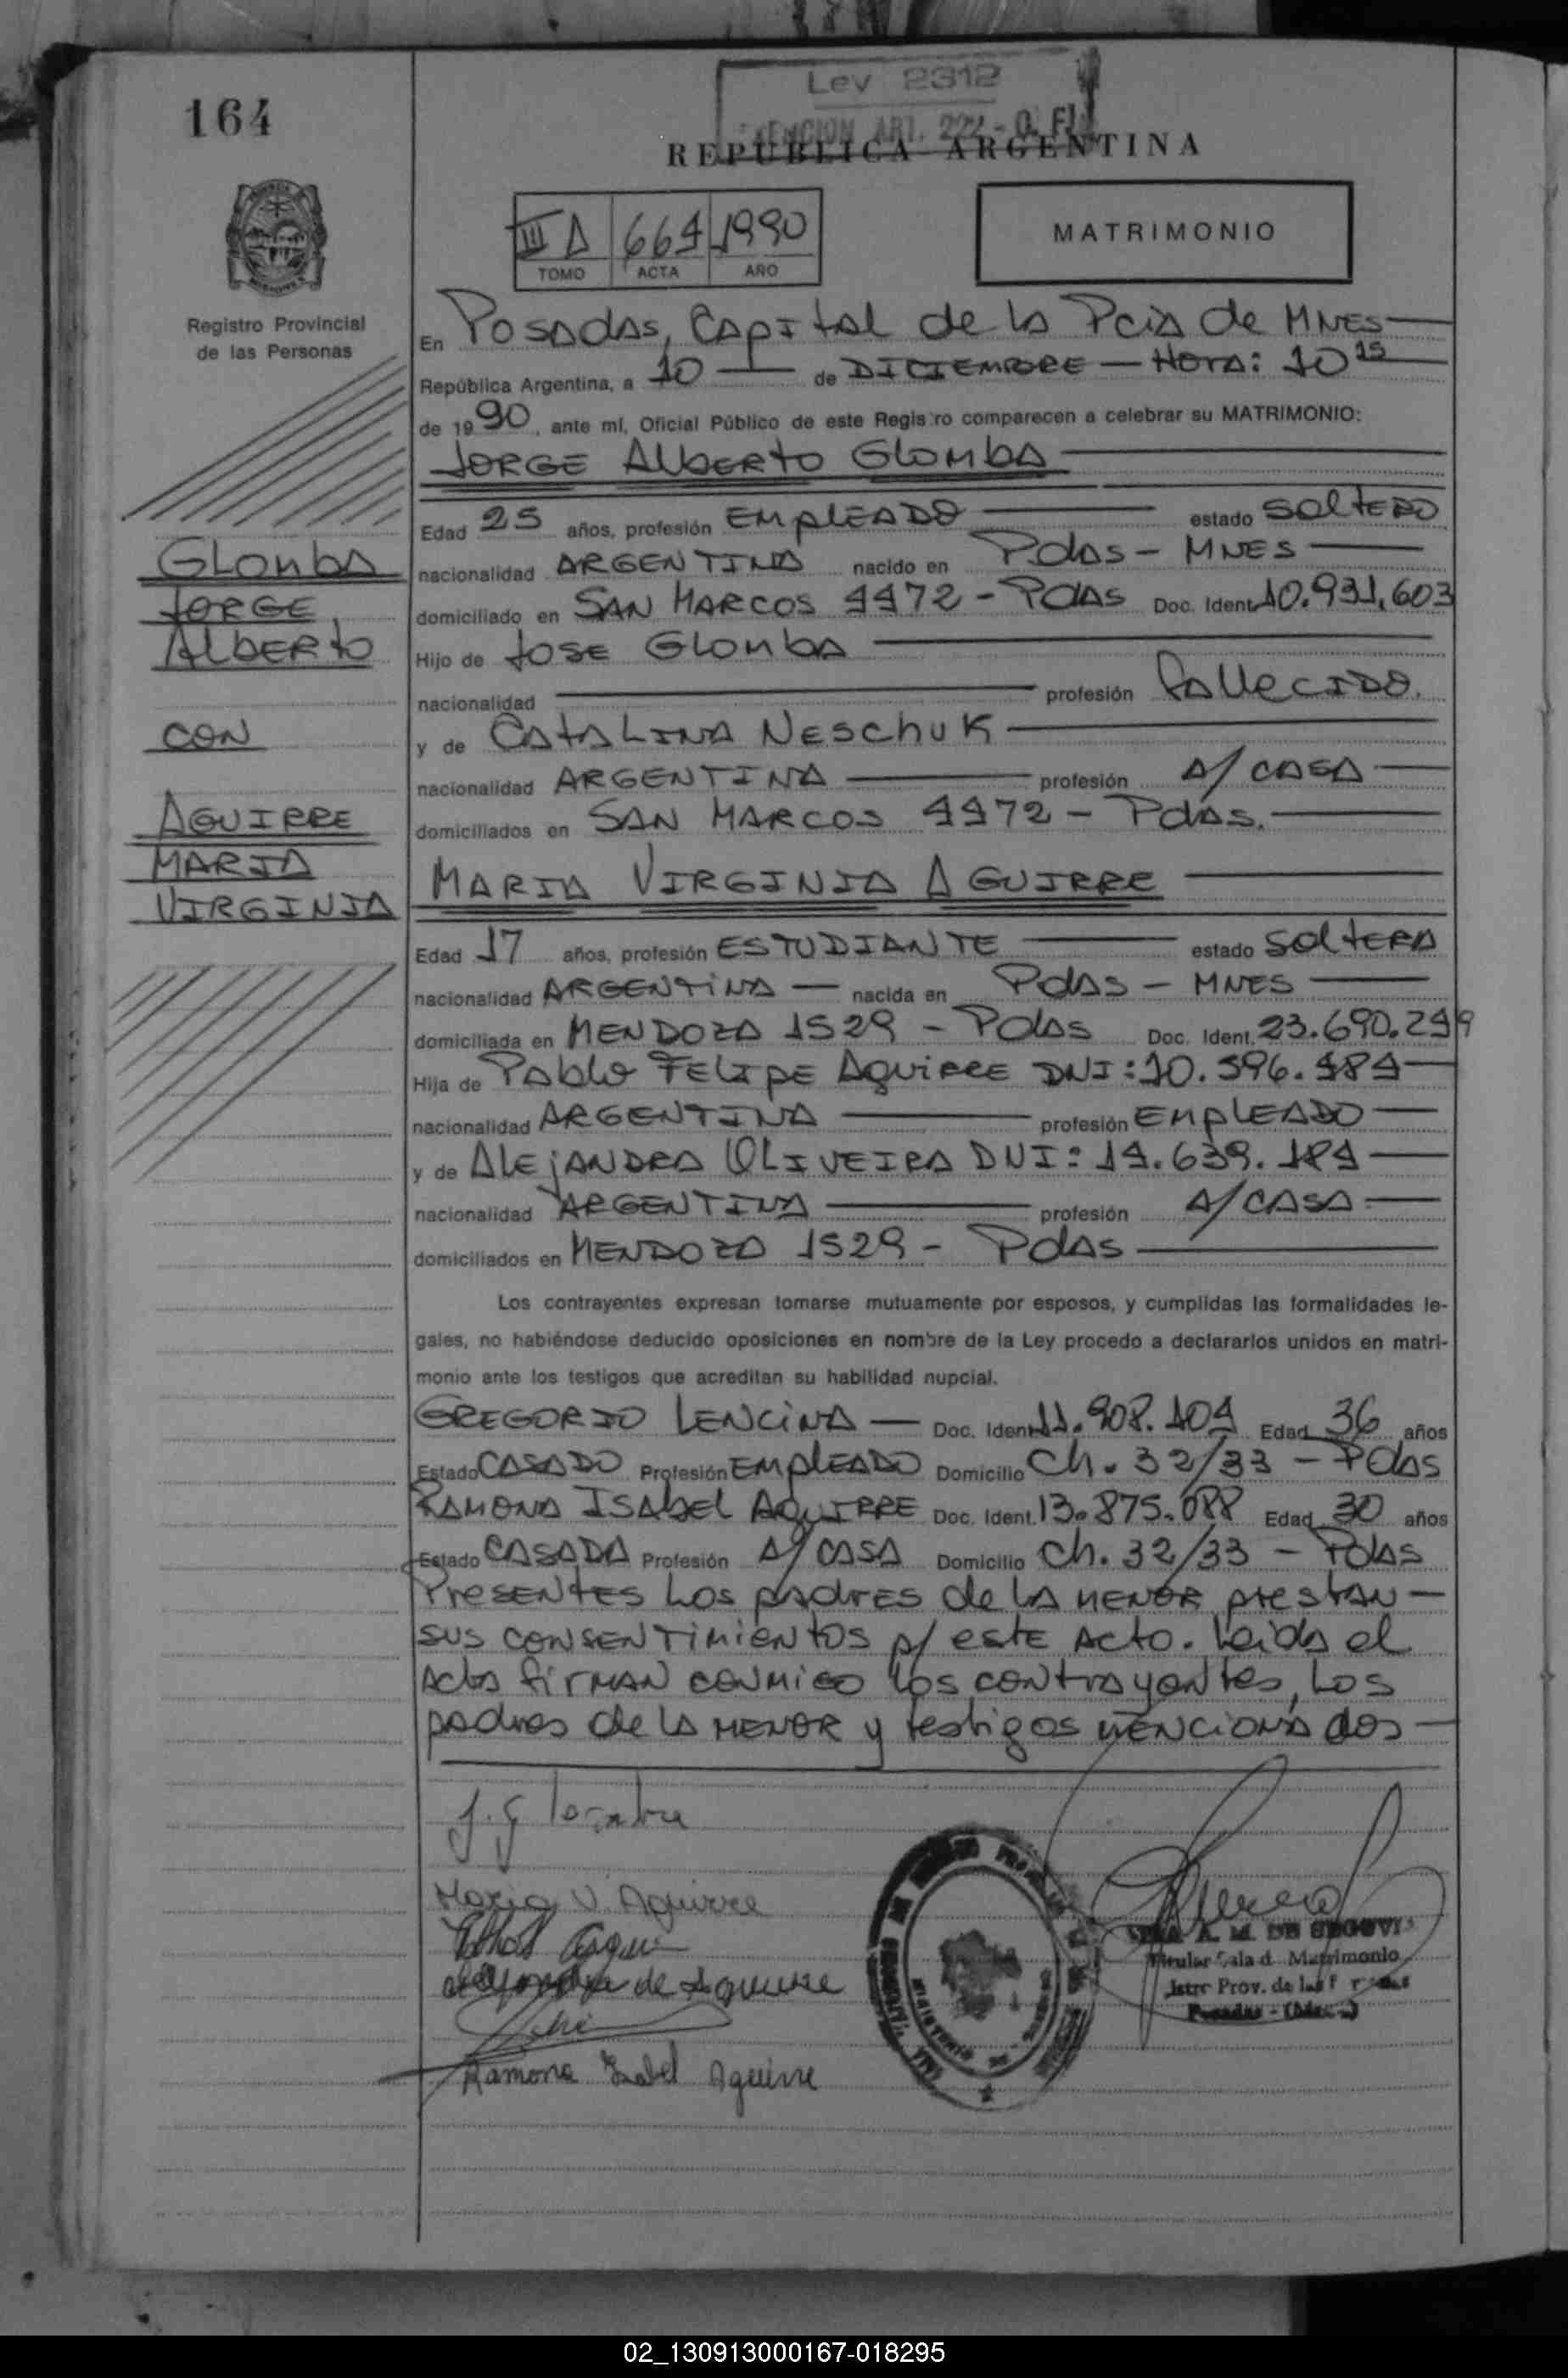 164
Ley 2312
EXENCION ART. 222 - C. F.
REPUBLICA ARGENTINA
III A 664 1990
TOMO ACTA AÑO
MATRIMONIO
Registro Provincial
de las Personas
En Posadas, Capital de la Pcia de Mnes
República Argentina, a 10 de DICIEMBRE - Hora: 10 15
de 1990, ante mí, Oficial Público de este Registro comparecen a celebrar su MATRIMONIO:
JORGE Alberto Glomba
Edad 25 años, profesión EMPLEADO estado SOLTERO
Glomba
nacionalidad ARGENTINA nacido en Pdas - MNES
JORGE
domiciliado en SAN MARCOS 4472 - Pdas Doc. Ident. 10.931.603
Alberto
Hijo de JOSE Glomba
nacionalidad profesión Fallecido.
CON
y de Catalina Neschuk
nacionalidad ARGENTINA profesión A/ CASA
AGUIRRE
domiciliados en SAN MARCOS 4472 - Pdas.
MARIA
MARIA VIRGINIA AGUIRRE
VIRGINIA
Edad 17 años, profesión ESTUDIANTE estado SOLTERA
nacionalidad ARGENTINA nacida en Pdas - MNES
domiciliada en MENDOZA 1529 - Pdas Doc. Ident. 23.690.249
Hija de Pablo FELIPE Aguirre DNI: 10.596.484
nacionalidad ARGENTINA profesión EMPLEADO
y de ALEJANDRA OLIVEIRA DNI: 14.639.184
nacionalidad ARGENTINA profesión A/ CASA
domiciliados en MENDOZA 1529 - Pdas
Los contrayentes expresan tomarse mutuamente por esposos, y cumplidas las formalidades le-
gales, no habiéndose deducido oposiciones en nombre de la Ley procedo a declararlos unidos en matri-
monio ante los testigos que acreditan su habilidad nupcial.
GREGORIO LENCINA Doc. Ident. 11.908.104 Edad 36 años
Estado CASADO Profesión EMPLEADO Domicilio Ch. 32/33 - Pdas
RAMONA ISABEL AGUIRRE Doc. Ident. 13.875.088 Edad 30 años
Estado CASADA Profesión A/ CASA Domicilio Ch. 32/33 - Pdas
Presentes los padres de la menor prestan
sus consentimientos p/ este acto. Leida el
Acta firman conmigo los contrayentes, los
padres de la menor y testigos mencionados
J. Glomba
Maria V. Aguirre
Alejandra de Aguirre
Ramona Isabel Aguirre
A. M. DE SEGOVIA
Titular Sala d. Matrimonio
Prov. de las
Posadas - (Mnes.)
02_130913000167-018295